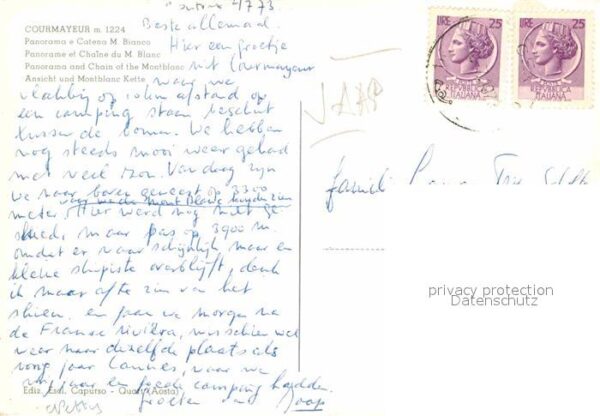 4773.
Beste allemaal.
COURMAYEUR m. 1224
Panorama e Catena M. Bianco
Panorame et Chaîne du M. Blanc
Panorama and Chain of the Montblanc
Ansicht und Montblanc Kette
Hier een groetje
uit Courmayeur
waar we
vlakbij op afstand op
een camping staan beschut
tussen de bomen. We hebben
nog steeds mooi weer gehad
met veel zon. Vandaag zijn
we naar boven geweest op 3300
van we de Mont Blanc zien
meter. Hier werd nog niet ge
skied, maar pas op 3900 m.
omdat er waarschijnlijk maar en
kleine skipiste overblijft, denk
ik maar af te zien van het
skien. en gaan we morgen na
de Franse riviera, misschien wel
weer naar dezelfde plaats als
vorig jaar Cannes, waar we
een goede camping hadden.
groeten van Joop
JAAP
LIRE 25
REPUBBLICA ITALIANA
LIRE 25
REPUBBLICA ITALIANA
familie
privacy protection
Datenschutz
Ediz. Esal. Caputso - Quart (Aosta)